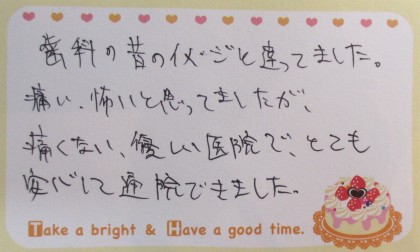 歯科の昔のイメージと違ってました。
痛い、怖いと思ってましたが、
痛くない、優しい医院で、とても
安心して通院できました。
Take a bright & Have a good time.